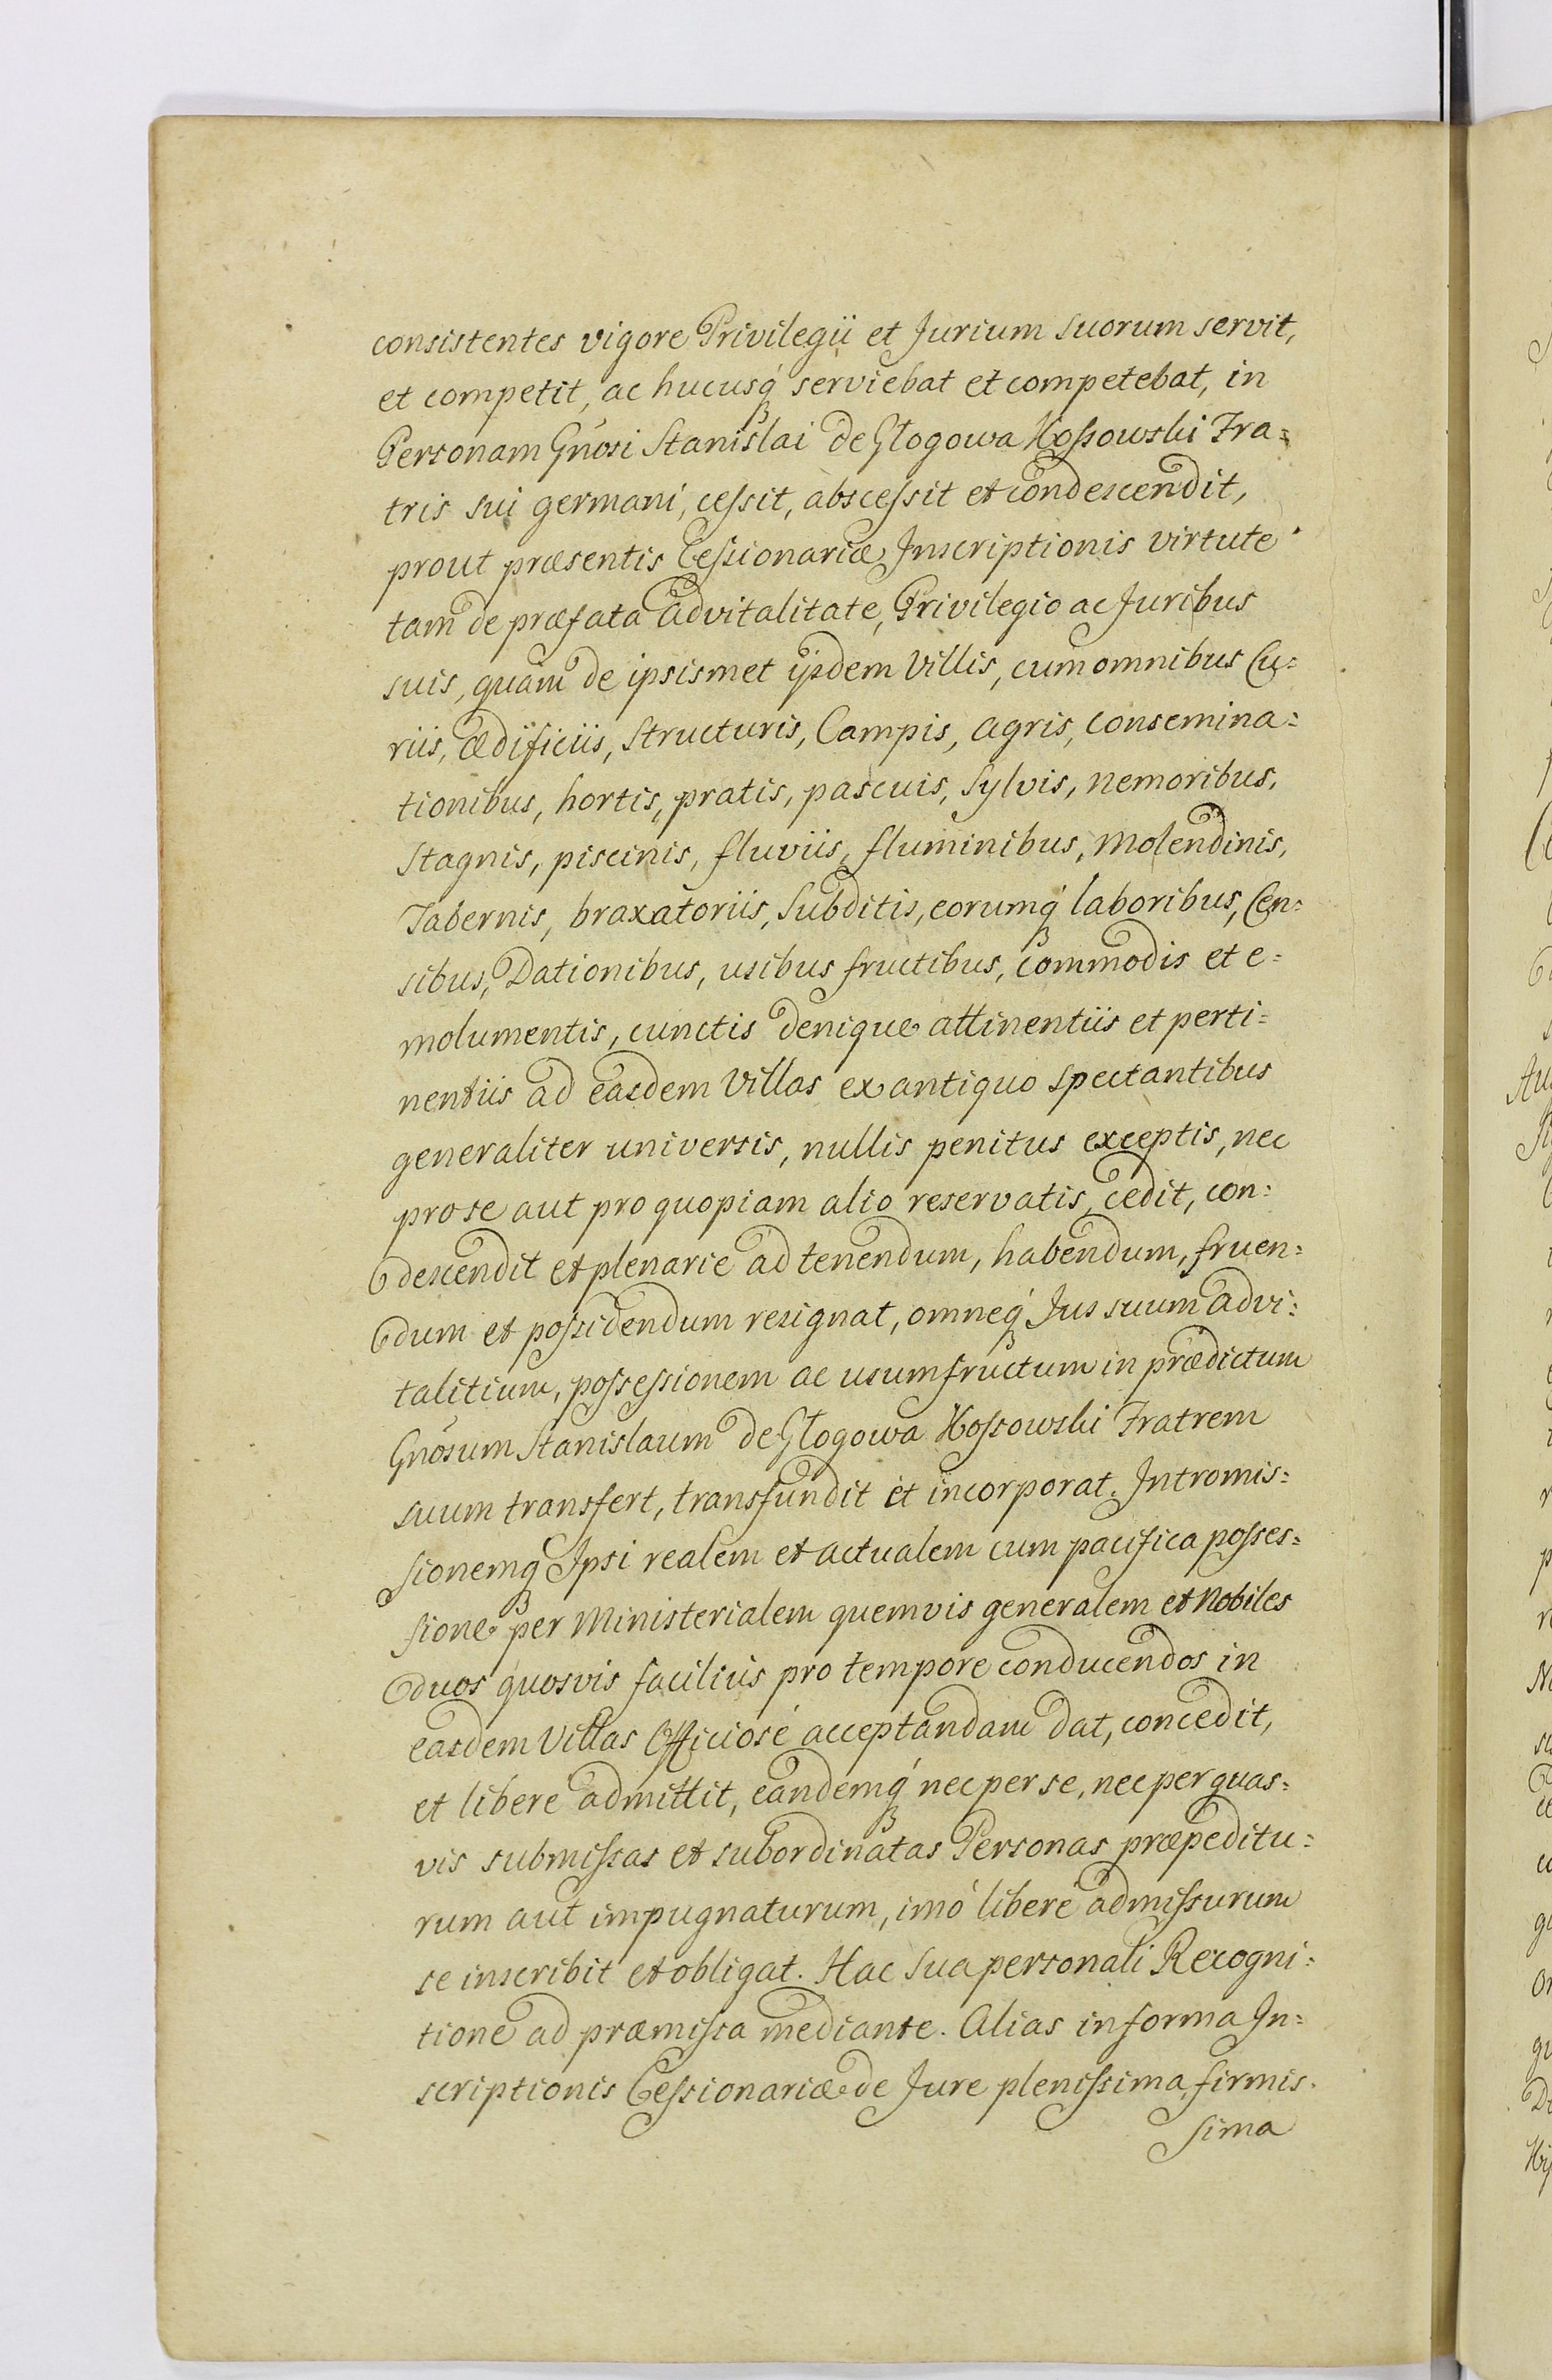 consistentes vigore Privilegii et Jurium suorum servit,
et competit, ac hucusq́ serviebat et competebat, in
Personam Gñosi Stanislai de Głogowa Kossowski Fra=
tris sui germani, cessit, abscessit et condescendit,
prout præsentis Cessionariæ Inscriptionis virtute
tam de præfata advitalitate, Privilegio ac Juribus
suis, quàm de ipsismet ijsdem Villis, cum omnibus Cu=
riis, ædificiis, Structuris, Campis, agris, consemina=
tionibus, hortis, pratis, pascuis, Sylvis, nemoribus,
Stagnis, piscinis, fluviis, fluminibus, Molendinis,
Tabernis, braxatoriis, Subditis, eorumq́ laboribus, Cen=
sibus, Dationibus, usibus fructibus, commodis et e=
molumentis, cunctis denique attinentiis et perti=
nentiis ad easdem Villas ex antiquo spectantibus
generaliter universis, nullis penitus exceptis, nec
pro se aut pro quopiam alio reservatis, cedit, con=
descendit et plenarie ad tenendum, habendum, fruen=
dum et possidendum resignat, omneq́ Jus suum advi=
talitium, possessionem ac usumfructum in prædictum
Gñosum Stanislaum de Głogowa Kossowski Fratrem
suum transfert, transfundit et incorporat. Intromis=
sionemq́ Ipsi realem et actualem cum pacifica posses=
sione per Ministerialem quemvis generalem et Nobiles
duos quosvis facilius pro tempore conducendos in
easdem Villas Officiosè acceptandam dat, concedit,
et libere admittit, eandemq́ nec per se, nec per quas=
vis submissas et subordinatas Personas præpeditu=
rum aut impugnaturum, imò liberè admissurum
se inscribit et obligat. Hac Sua personali Recogni=
tione ad præmissa mediante. Alias in forma In=
scriptionis Cessionariæ de Jure plenissima, firmis.
sima